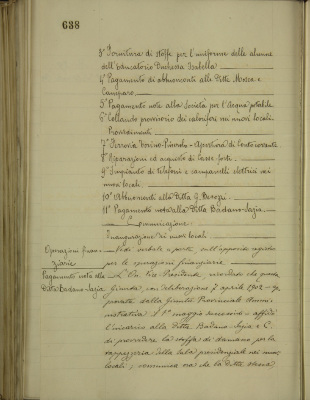 638
3° Fornitura di stoffe per l'uniforme delle alunne
dell'Educatorio Duchessa Isabella
4° Pagamento di abbuonconti alle Ditte Mosca e
Camparo
5° Pagamento note alla Società per l'Acqua potabile
6° Collaudo provvisorio dei caloriferi nei nuovi locali.
Provvedimenti
7° Ferrovia Torino-Pinerolo - apertura di Conto corrente
8° Riparazioni ed acquisto di Casse forti.
9° Impianto di telefoni e campanelli elettrici nei
nuovi locali
10° Abbuonconti alla Ditta G.
11° Pagamento nota alla Ditta Badano-Sezia
Comunicazione
Inaugurazione dei nuovi locali
Operazioni finan- Vedi verbale a parte sull'apposito registro
ziarie per le operazioni finanziarie
Pagamento nota alla L'On. Pro Presidente ricordato che questa
Ditta Badano-Sezia Giunta, con deliberazione 7 aprile 1902 - ap
provata dalla Giunta Provinciale Ammi
nistrativa il 1° maggio successivo - affidò
l'incarico alla Ditta Badano-Sezia e C.
di provvedere la stoffa di damasco per la
tappezzeria della Sala presidenziale nei nuovi
locali, comunica ora che la Ditta stessa,